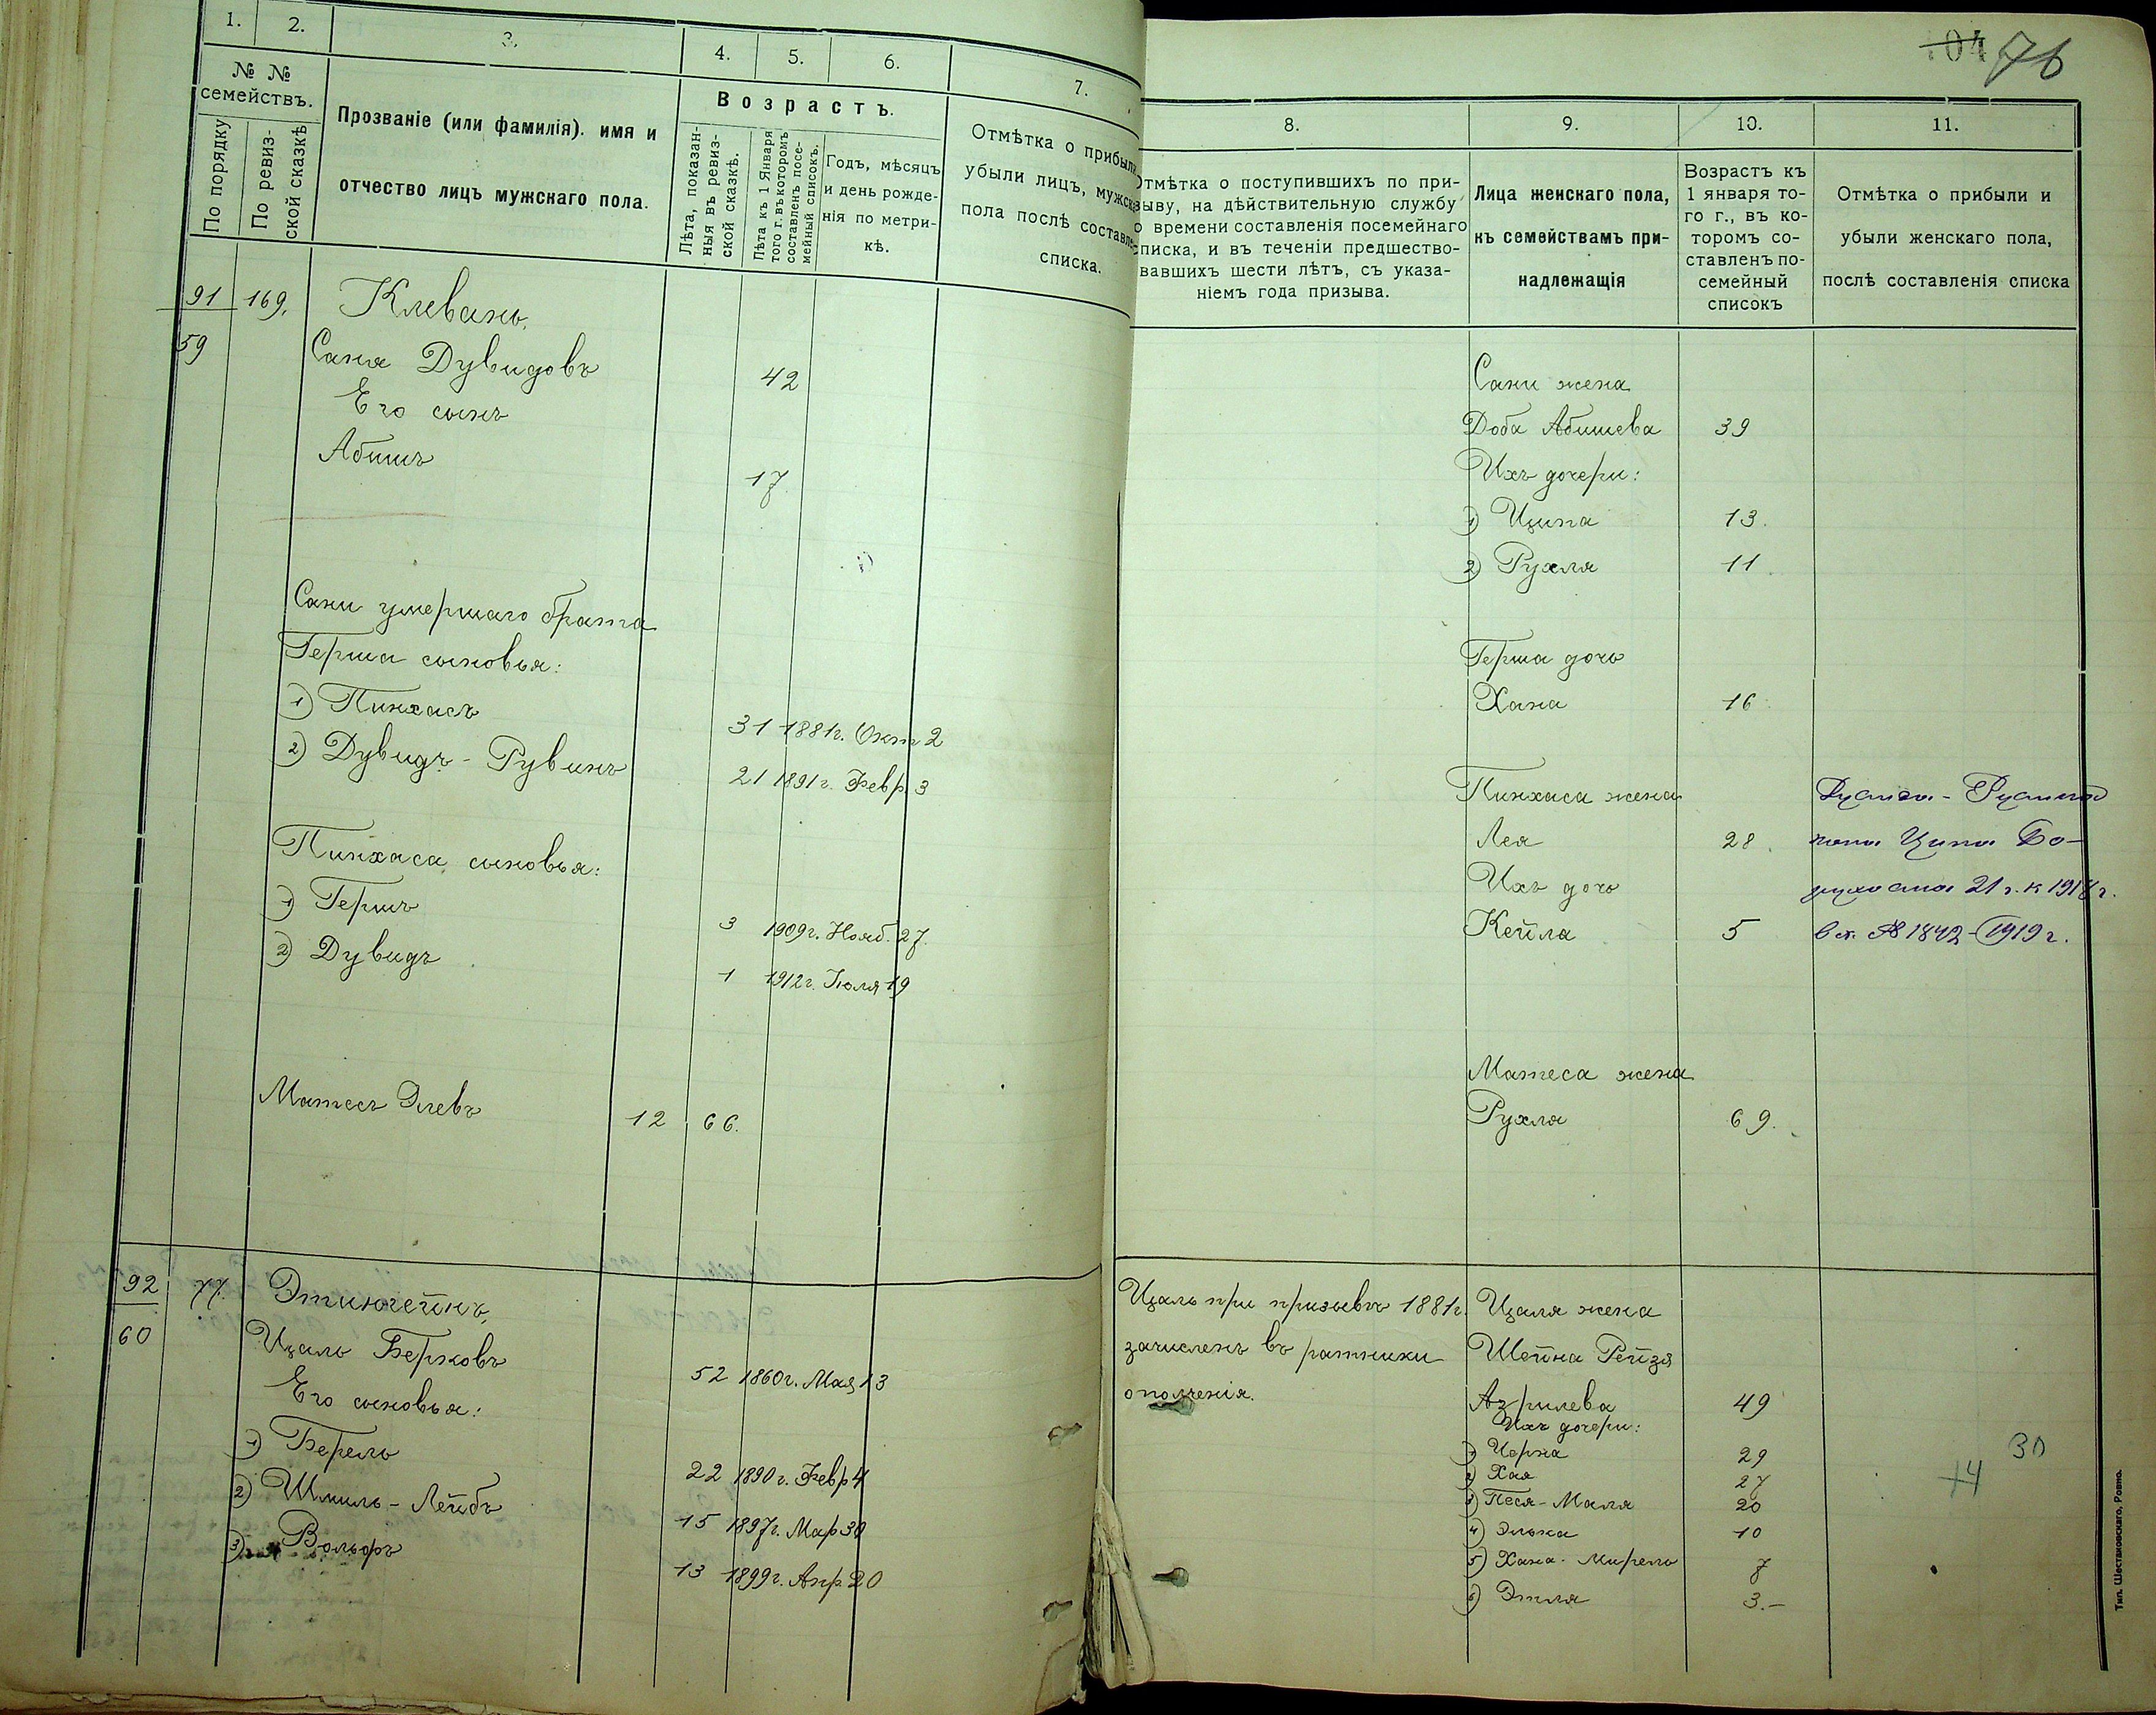 1.
2.
3.
4.
5.
6.
7.
№ №
семействъ.
По порядку
По ревиз-
ской сказкѣ
Прозваніе (или фамилія). имя и
отчество лицъ мужскаго пола.
Возрастъ.
Лѣта, показан-
ныя въ ревиз-
ской сказкѣ.
Лѣта къ 1 Января
того г. въ которомъ
составленъ посе-
мейный списокъ.
Годъ, мѣсяцъ
и день рожде-
нія по метри-
кѣ.
Отмѣтка о прибыли
убыли лицъ, мужска
пола послѣ составле
списка.
91 169. Клевань,
59 Саня Дувидовъ 42
Его сынъ
Абишъ 17
Сани умершаго брата
Герша сыновья:
1) Пинхасъ 31 1881г. Окт 2
2) Дувидъ-Рувинъ 21 1891г. Февр. 3
Пинхаса сыновья:
1) Гершъ 3 1909г. Нояб. 27.
2) Дувидъ 1 1912г. Іюля 19
Матесъ Элевъ 12 66.
92 77. Этингейнъ,
60 Цаль Берковъ 52 1860г. Мая 13
Его сыновья:
1) Берель 22 1890г. Февр 4
2) Шмиль-Лейбъ 15 1897г. Мар 30
3) Вольфъ 13 1899г. Апр 20
104 76
8.
9.
10.
11.
Отмѣтка о поступившихъ по при-
зыву, на дѣйствительную службу
о времени составленія посемейнаго
списка, и въ теченіи предшество-
вавшихъ шести лѣтъ, съ указа-
ніемъ года призыва.
Лица женскаго пола,
къ семействамъ при-
надлежащія
Возрастъ къ
1 января то-
го г., въ ко-
торомъ со-
ставленъ по-
семейный
списокъ
Отмѣтка о прибыли и
убыли женскаго пола,
послѣ составленія списка
Сани жена
Доба Абишева 39
Ихъ дочери:
1) Ципа 13.
2) Рухля 11.
Герша дочь
Хана 16
Пинхаса жена
Лея 28.
Ципа Бо-
Ихъ дочь
21 г. к 1918 г.
Кейла 5
№ 1842-1919 г.
Матеса жена
Рухля 69.
Цаль при призывѣ 1881г.
зачисленъ въ ратники
ополченія.
Цаля жена
Шейна Рейзя
Азрилева 49
Ихъ дочери:
1) Черна 29
2) Хая 27
3) Песя-Маля 20
4) Элька 10
5) Хана-Мирель 7
6) Этля 3.-
30
+4
Тип. Шестаковскаго, Ровно.